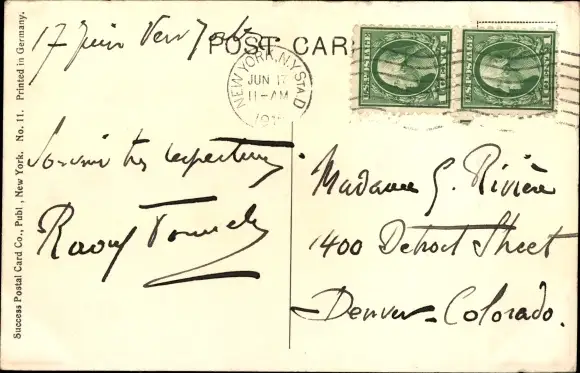 17 Juin New York
POST CARD
NEW YORK, N.Y. STA. D
JUN 17
11-AM
191
U.S. POSTAGE
U.S. POSTAGE
Souvenir très respectueux
Raoul
Madame G. Rivière
1400 Detroit Street
Denver - Colorado.
Success Postal Card Co., Publ., New York. No. 11. Printed in Germany.